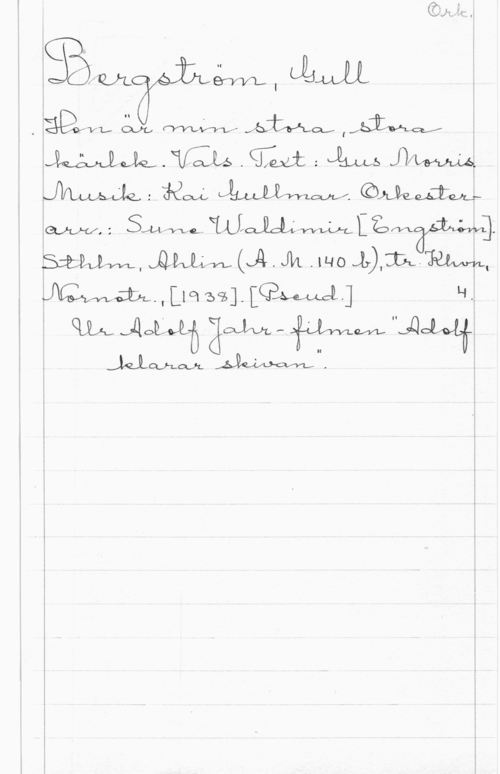 Ork.
Bergström, Gull
Hon är min stora, stora
kärlek. Vals. Text: Gus Morris.
Musik: Kai Gullmar. Orkester-
arr.: Sune Waldimir [Engström].
Sthlm, Ahlin (A. M. 140 b), tr. Khvn,
Nornotr., [1938]. [Pseud.] 4.
Ur Adolf Jahr-filmen "Adolf
klarar skivan".